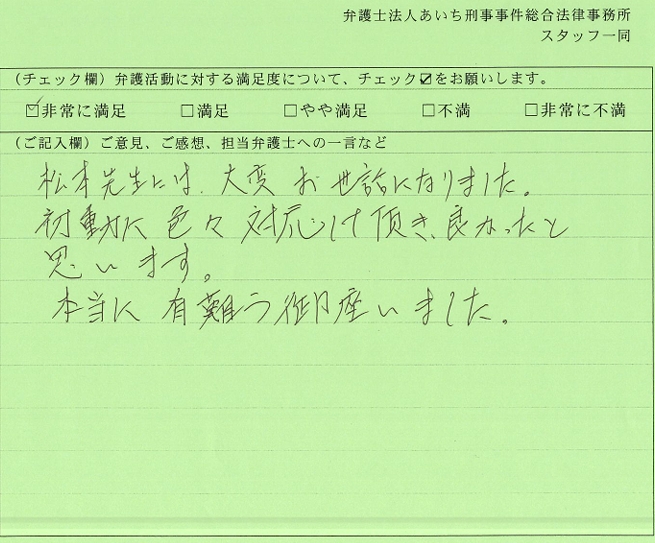 弁護士法人あいち刑事事件総合法律事務所
スタッフ一同
(チェック欄)弁護活動に対する満足度について、チェック☑をお願いします。
☑非常に満足 □満足 □やや満足 □不満 □非常に不満
(ご記入欄)ご意見、ご感想、担当弁護士への一言など
松本先生には、大変お世話になりました。
初動に色々対応して頂き、良かったと
思います。
本当に有難う御座いました。